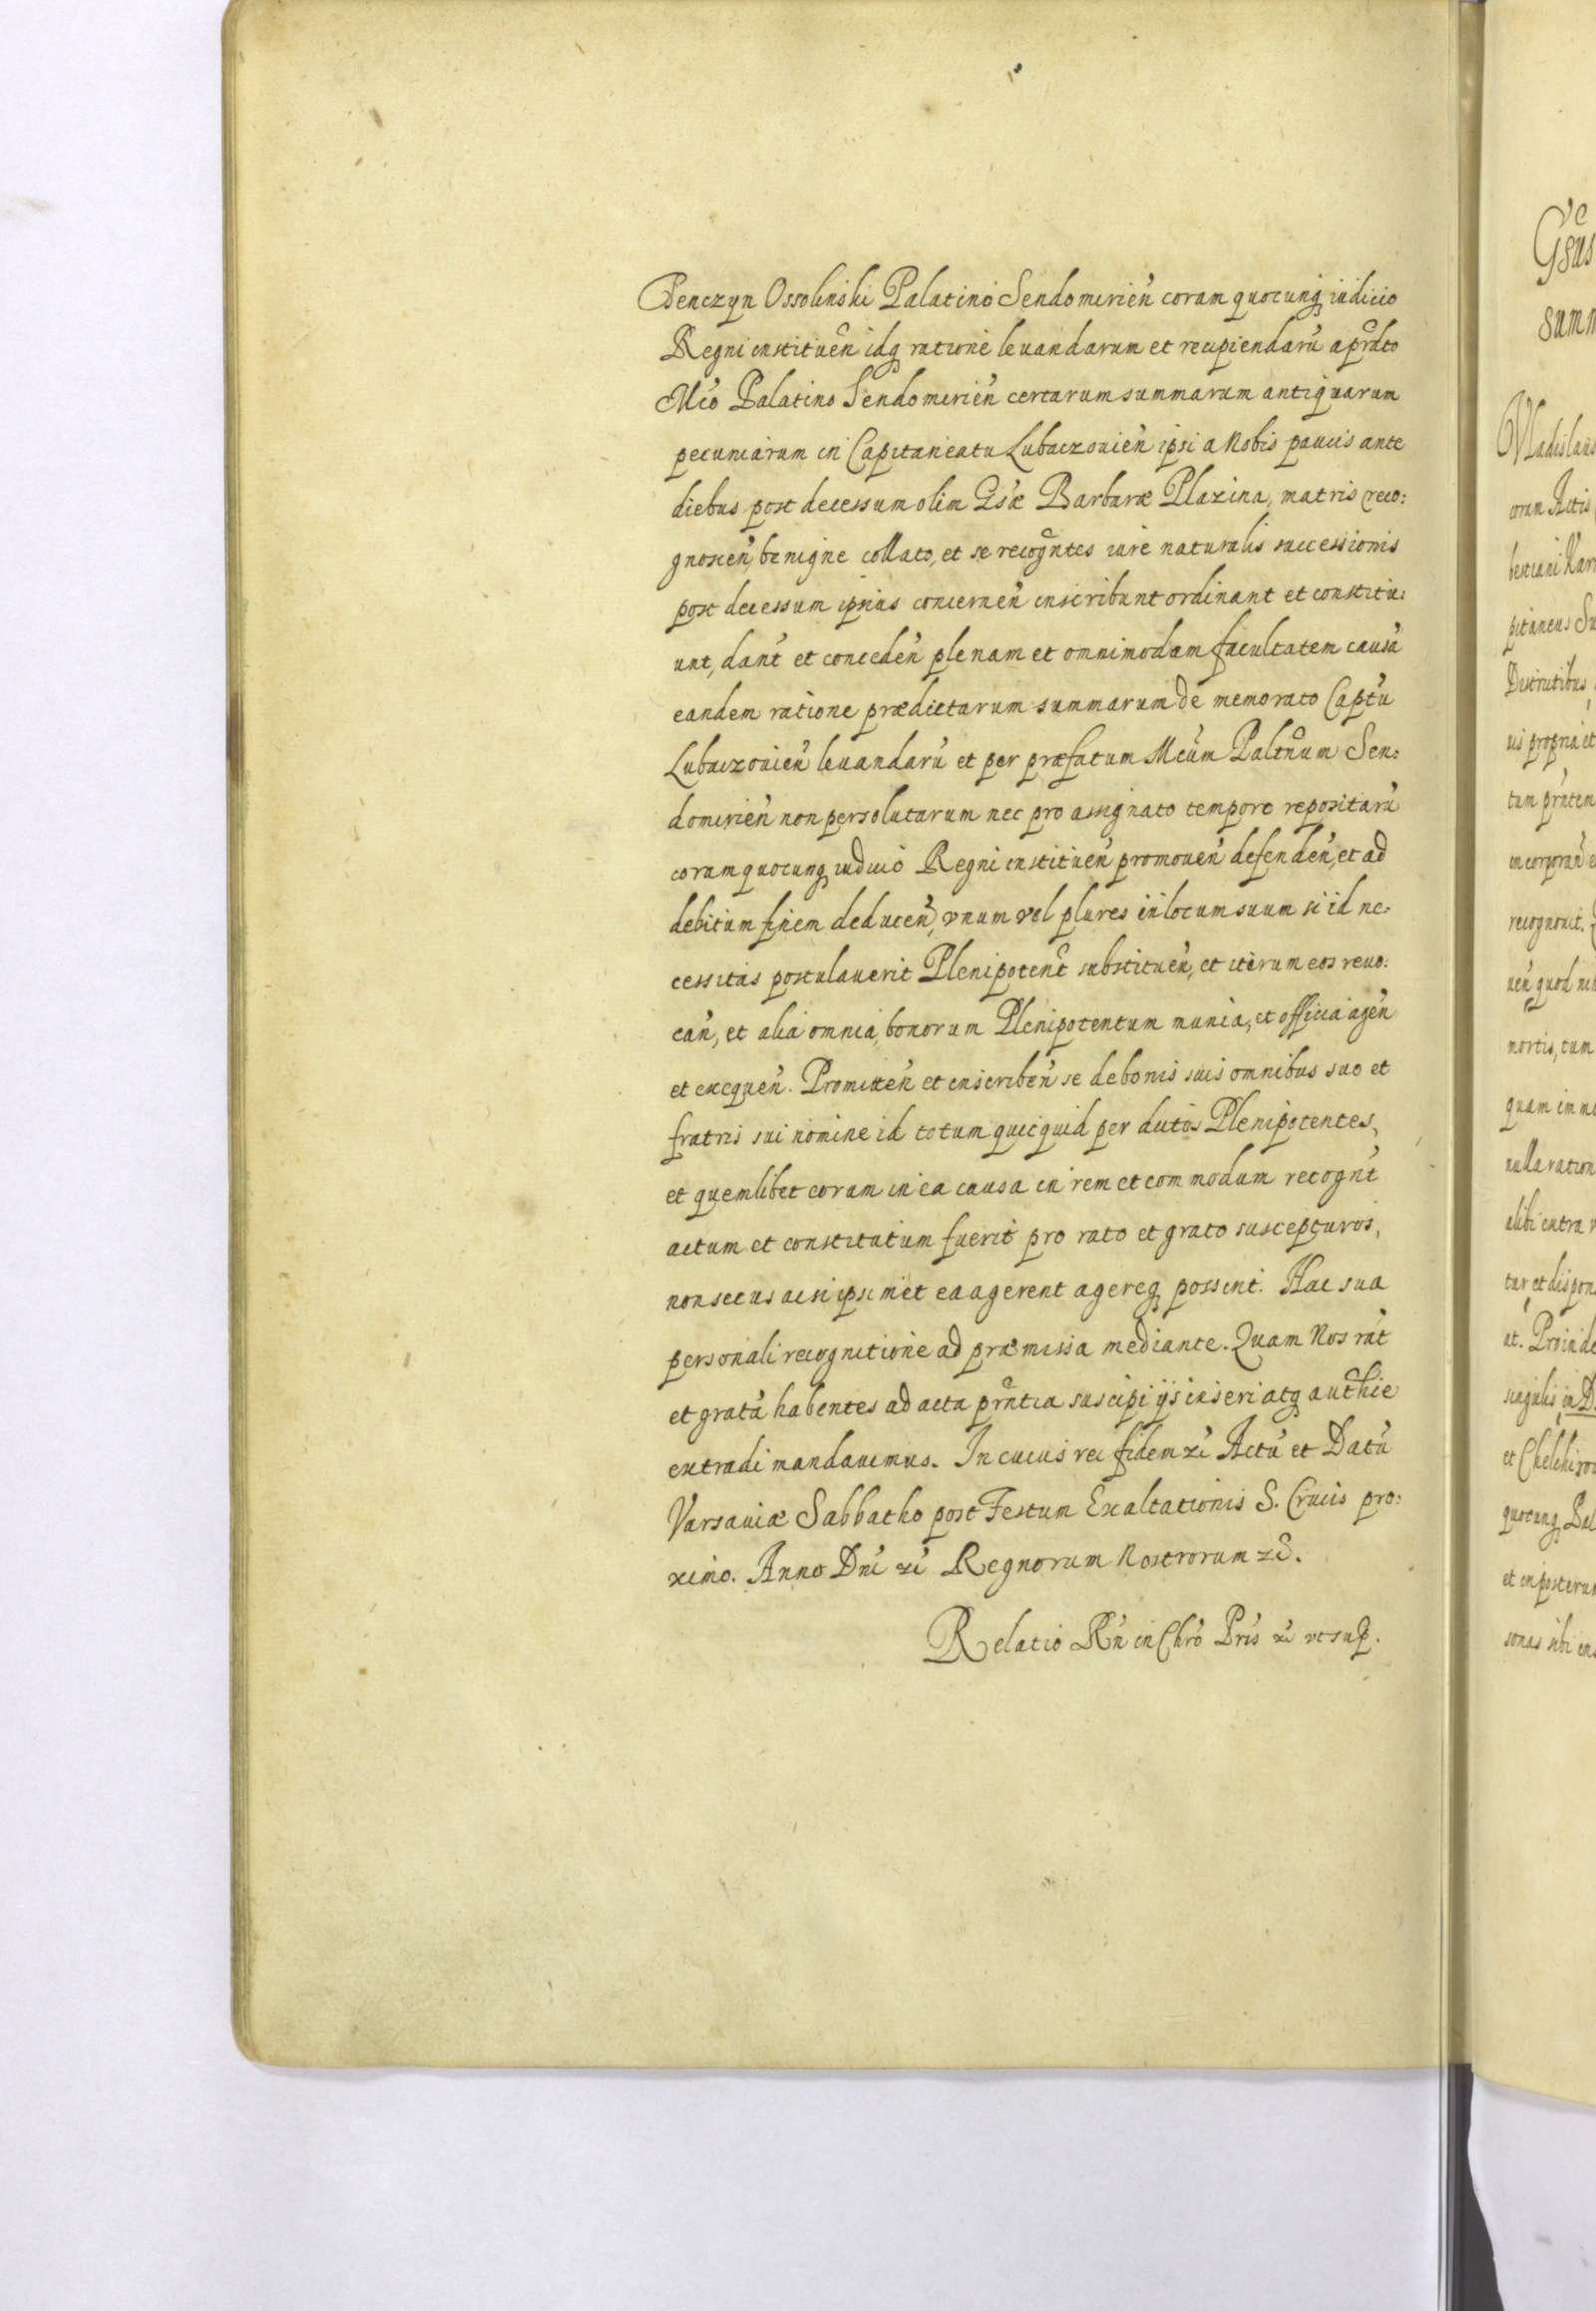 Tenczyn Ossolinski Palatino Sendomirien̄ coram quocunq iudicio
Regni instituen̄ idq ratione leuandarum et recipiendarū a prd̄to
Mc̄o Palatino Sendomirien̄ certarum summarum antiquarum
pecuniarum in Capitaneatu Lubaczouien̄ ipsi a Nobis paucis ante
diebus post decessum olim Gsæ Barbaræ Plazina, matris reco:
gnoscen̄ benigne collato, et se recogn̄tes iure naturalis successionis
post decessum ipsius concernen̄ inscribunt ordinant et constitu:
unt, dant et conceden̄ plenam et omnimodam facultatem causā
eandem ratione prædictarum summarum de memorato Captū
Lubaczouien̄ leuandarū et per præfatum Mcūm Paltn̄um Sen:
domirien̄ non persolutarum nec pro assignato tempore repositarū
coram quocunq iudicio Regni instituen̄ promouen̄ defenden̄, et ad
debitum finem deducen̄, vnum vel plures in locum suum si id ne:
cessitas postulauerit Plenipotent̄ substituen̄, et iterum eos reuo:
can̄, et alia omnia bonorum Plenipotentum munia, et officia agen̄
et exequen̄. Promitten̄ et inscriben̄ se de bonis suis omnibus suo et
fratris sui nomine id totum quicquid per dictos Plenipotentes,
et quemlibet eorum in ea causa in rem et commodum recognt̄
actum et constitutum fuerit pro rato et grato suscepturos,
non secus ac si ipsimet ea agerent agereq possint. Hac sua
personali recognitione ad præmissa mediante. Quam Nos rāt
et gratā habentes ad acta prn̄tia suscipi ijs inseri atq authīe
extradi mandauimus. In cuius rei fidem zī Actū et Datū
Varsauiæ Sabbatho post Festum Exaltationis S. Crucis pro:
ximo. Anno Dnī zī Regnorum Nostrorum zī.
Relatio Rn̄ in Chrō Pris̄ zī vt sup.
Gsūs
summ
Vladislaus
coram Actis
pitaneus Su
Districtibus
uis propria et
tum prn̄ten
incorporan̄ e
recognouit.
uen̄ quod ni
mortis, tum
quam imm
nulla ration
alibi extra
tur et dispon
at. Proinde
singulis in D
et Chelchi
quocunq Pal
et in posterum
sonas sibi in